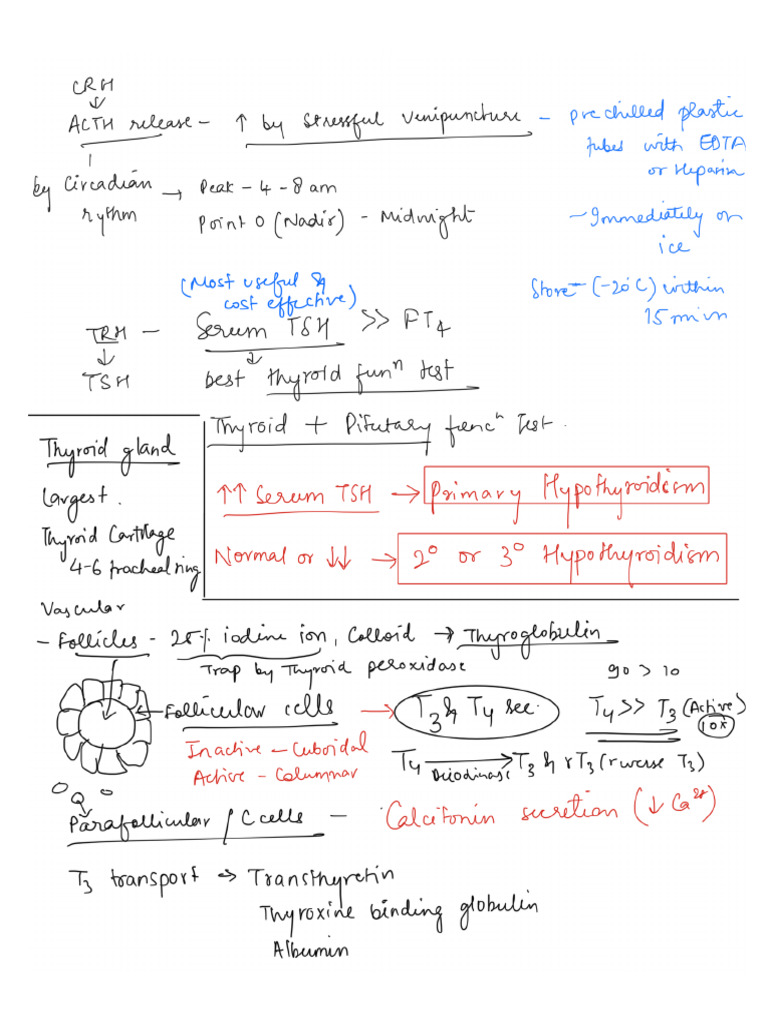 CRH
↓
ACTH release – ↑ by stressful venipuncture – prechilled plastic
tubes with EDTA
or Heparin
by Circadian → Peak – 4 – 8 am
rythm Point 0 (Nadir) – Midnight
– Immediately on
ice
Store – (-20°C) within
15 min
(Most useful &
cost effective)
TRH – Serum TSH >> FT4
↓ ↓
TSH best thyroid funⁿ test
Thyroid + Pitutary funcⁿ Test.
Thyroid gland
Largest.
Thyroid Cartilage
4-6 tracheal ring
Vascular
↑↑ Serum TSH → Primary Hypothyroidism
Normal or ↓↓ → 2° or 3° Hypothyroidism
– Follicles – 25% iodine ion, Colloid → Thyroglobulin
Trap by Thyroid peroxidase
90 > 10
Follicular cells → T3 & T4 sec.
T4 >> T3 (Active)
10x
Inactive – Cuboidal
Active – Columnar
T4 → T3 & rT3 (rverse T3)
Deiodinase
Parafollicular / C cells – Calcitonin secretion (↓ Ca²⁺)
T3 transport → Transthyretin
Thyroxine binding globulin
Albumin